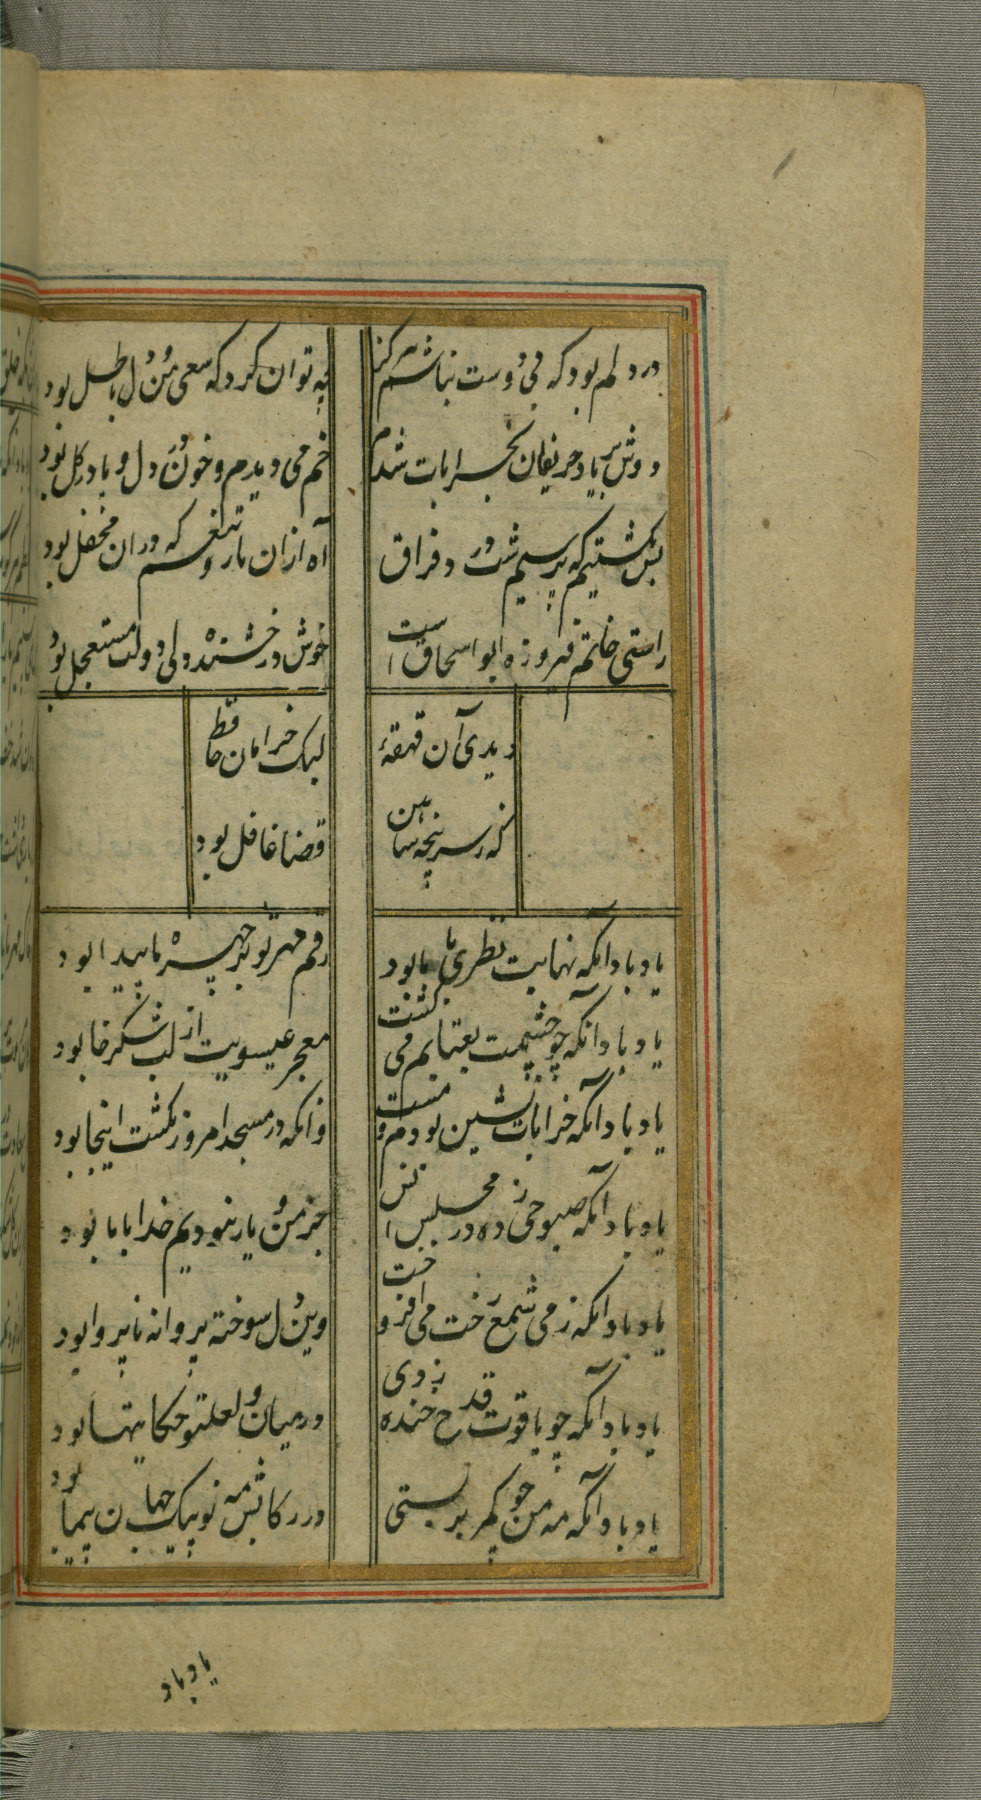 در دلم بود که بی دوست نباشم هرگز چه توان کرد که سعی من و دل باطل بود
دوش بر یاد حریفان بخرابات شدم خم می دیدم و خون در دل و پا در گل بود
بس بگشتیم که پرسیم سبب درد فراق آه ازان یار و تنغم که دران محفل بود
راستی خاتم فیروزه ابو اسحاق است خوش درخشنده ولی دولت مستعجل بود
دیدی آن قهقهۀ کبک خرامان حافظ
که ز سر پنجه شاهین قضا غافل بود
یاد باد انکه نهانیت نظری با ما بود رقم مهر تو بر چهره ما پیدا بود
یاد باد انکه چو چشمت بعتابم می کشت معجز عیسویت از لب شکر خا بود
یاد باد آنکه خرابات نشین بودم و مست وانکه در مسجد امروز کمست اینجا بود
یاد باد آنکه صبوحی زده در مجلس انس جز من و یار نبودیم خدا با ما بود
یاد باد انکه ز می شمع رخت می افروخت وین دل سوخته پروانه ناپروا بود
یاد باد آنکه چو یاقوت قدح خنده زدی در میان و لعل تو حکایتها بود
یاد باد آنکه مه من چو کمر بر بستی در رکابش مه نو پیک جهان پیما بود
یاد باد